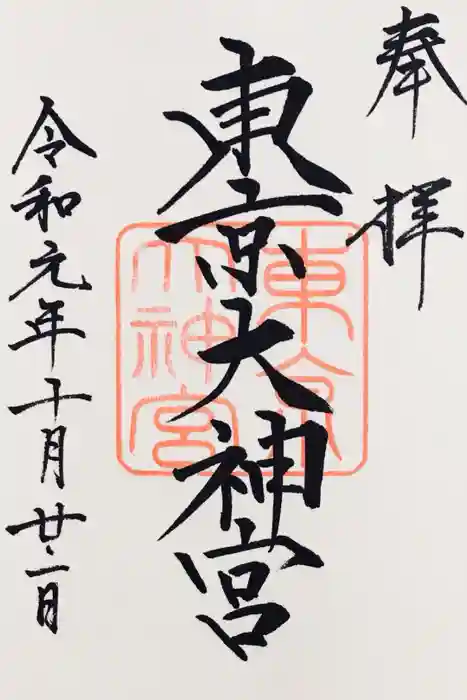 奉拝
東京大神宮
東京
大神宮
令和元年十月廿二日